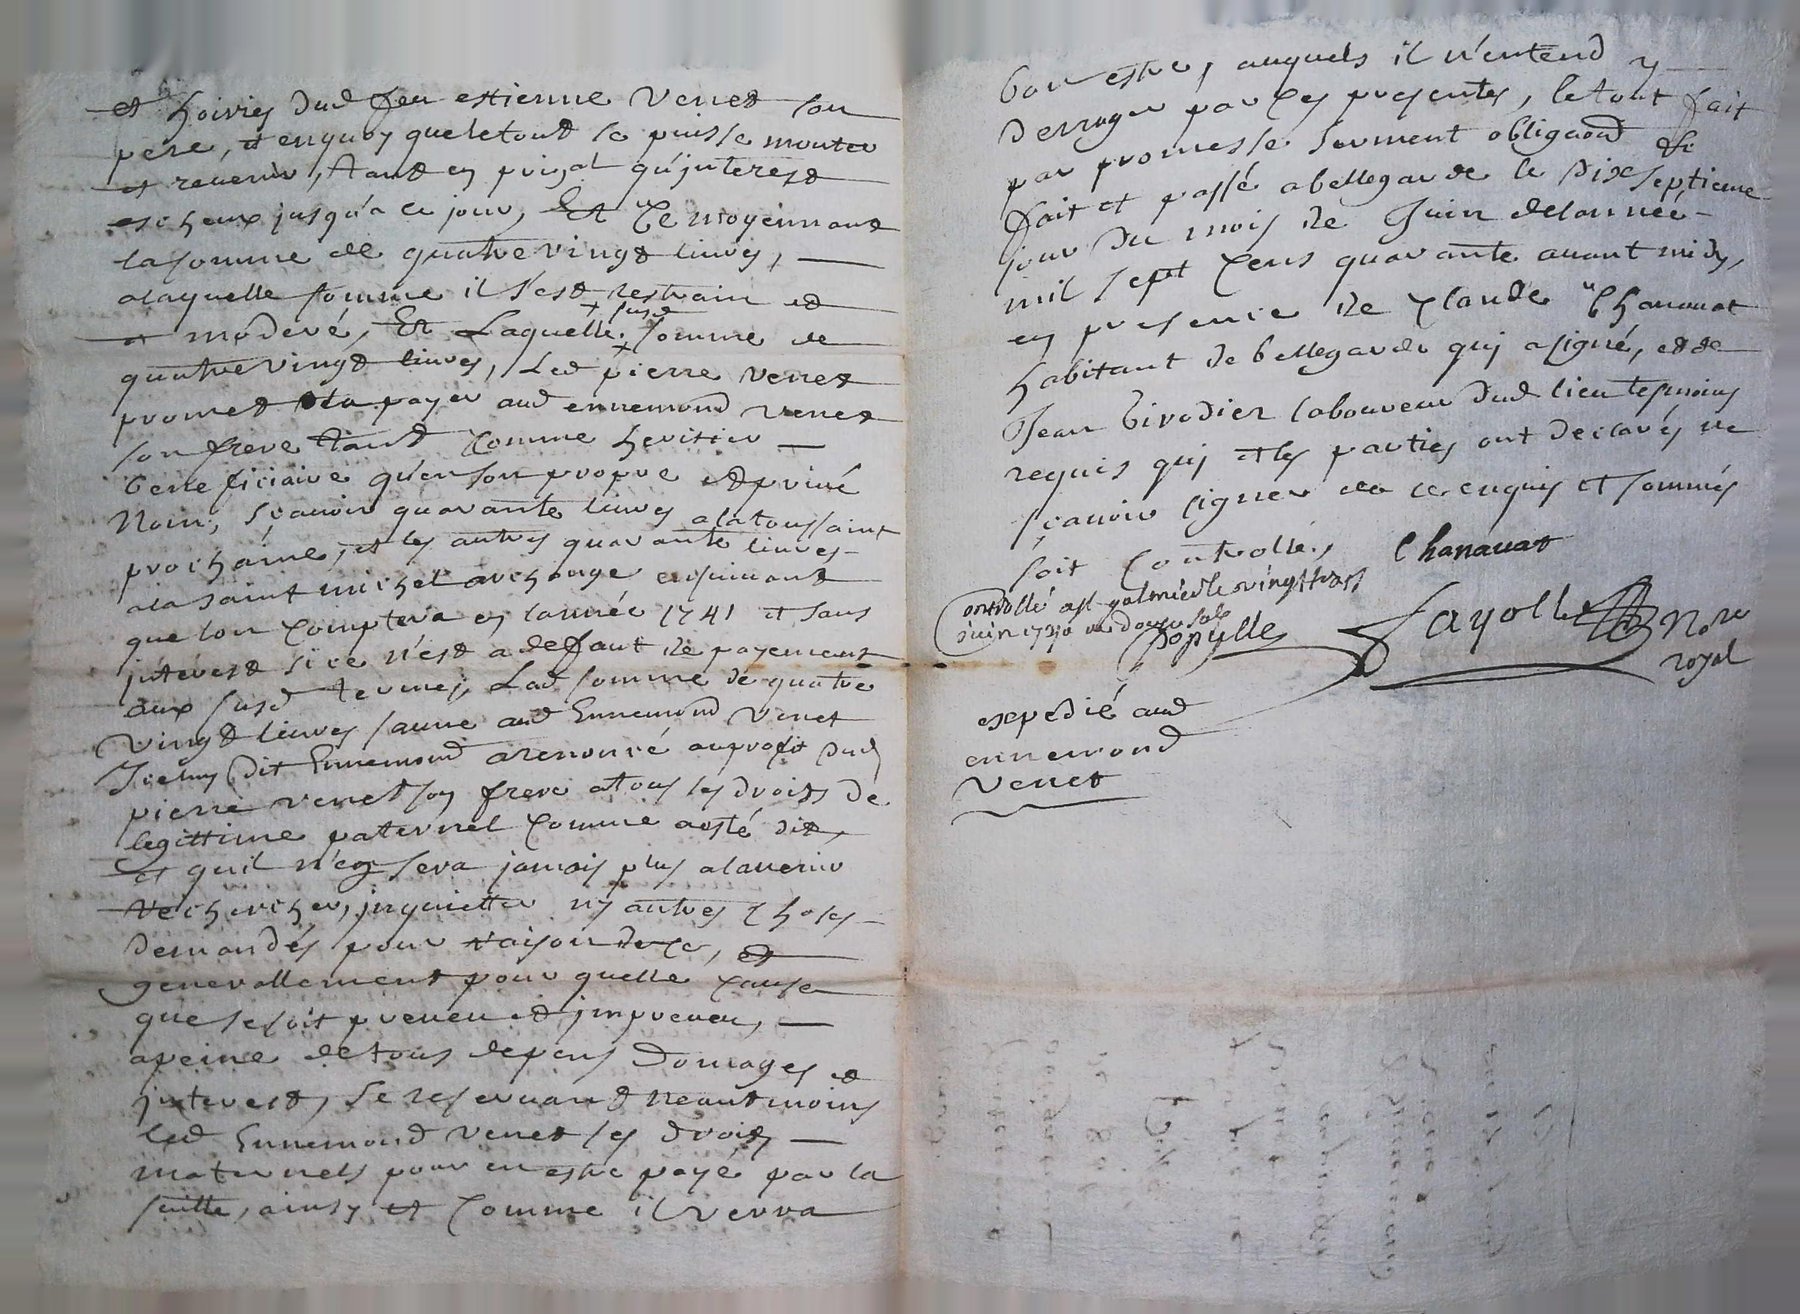 et hoiries dud feu estienne Venet son
pere, et enquoy que le tout se puisse monter
et revenir, tant en prinal qu'interest
escheux jusqu'a ce jour, Et Ce moyennant
la somme de quatre vingt livres,
a laquelle somme il s'est restrain et
et moderé, Et Laquelle susd somme de
quatre vingt livres, Led pierre venet
promet payer aud ennemond venet
son frere tant Comme heritier
beneficiaire qu'en son propre et privé
Nom, scavoir quarante livres a la toussaint
prochaine, et les autres quarante livres
a la saint michel archange ensuivant
que lon Comptera en lannée 1741 et sans
interest si ce n'est a defaut de payement
aux susd termes, Lad somme de quatre
vingt livres sauve aud Ennemond Venet
Iceluy dit Ennemond a renoncé au profit dud
pierre venet son frere a tous les droits de
legittime paternel Comme a esté dit,
et quil n'en sera jamais plus a lavenir
recherché, inquietter ny autres Choses
demandés pour raison de ce, et
generallement pour quelle Cause
que se soit preveu et impreveu,
a peine de tous depens domages et
interest, se reservant neantmoins
led Ennemond venet ses droits
maternels pour en estre payé par la
suitte, ainsy et Comme il verra
bon estre, auquels il n'entend y
derroger par Ces presentes, le tout fait
par promesse serment obligaond &c
fait et passé a bellegarde le dix septieme
jour du mois de Juin de lannée
mil sept Cens quarante avant midy,
en presence de Claude Chanavat
habitant de bellegarde qui a signé, et de
Jean Virodier laboureur dud lieu tesmoins
requis qui et les parties ont declarés ne
scavoir signer de ce enquis et sommés
soit Controllé, Chanavat
Controllé a st galmier le vingt trois
juin 1740 Rs douze sols
Popylle Fayolle Nore
royal
expedié aud
ennemond
Venet